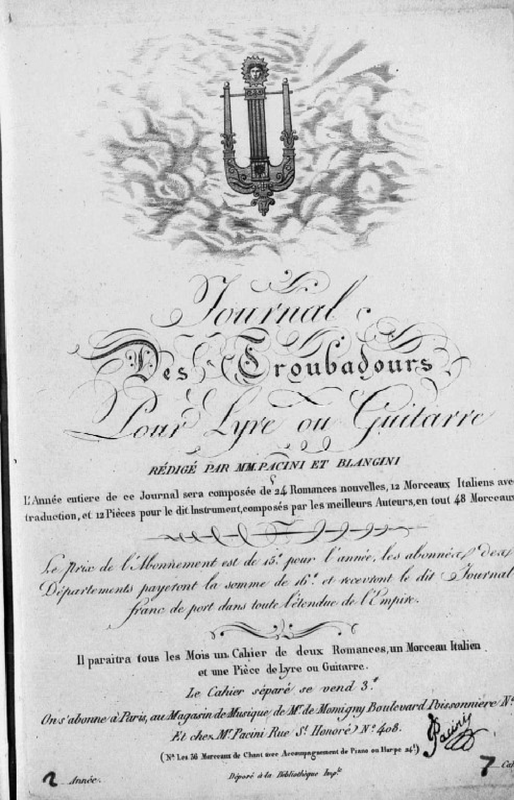 Journal
Des Troubadours
Pour Lyre ou Guitarre
RÉDIGÉ PAR MM. PACINI ET BLANGINI
L'Année entiere de ce Journal sera composée de 24 Romances nouvelles, 12 Morceaux Italiens avec
traduction, et 12 Piéces pour le dit Instrument, composés par les meilleurs Auteurs, en tout 48 Morceaux
Le prix de l'Abonnement est de 15.f pour l'année, les abonnés des
Départements payeront la somme de 16.f et recevront le dit Journal
franc de port dans toute l'étendue de l'Empire.
Il paraitra tous les Mois un Cahier de deux Romances, un Morceau Italien
et une Piéce de Lyre ou Guitarre.
Le Cahier séparé se vend 3.f
On s'abonne à Paris, au Magasin de Musique de Mr. de Momigny Boulevard Poissonnière N.o
Et chez Mr. Pacini Rue St. Honoré N.o 408.
(Na Les 36 Morceaux de Chant avec Accompagnement de Piano ou Harpe 24.f)
Pacini
2 Année.
Déposé à la Bibliothèque Imple
7 Ca